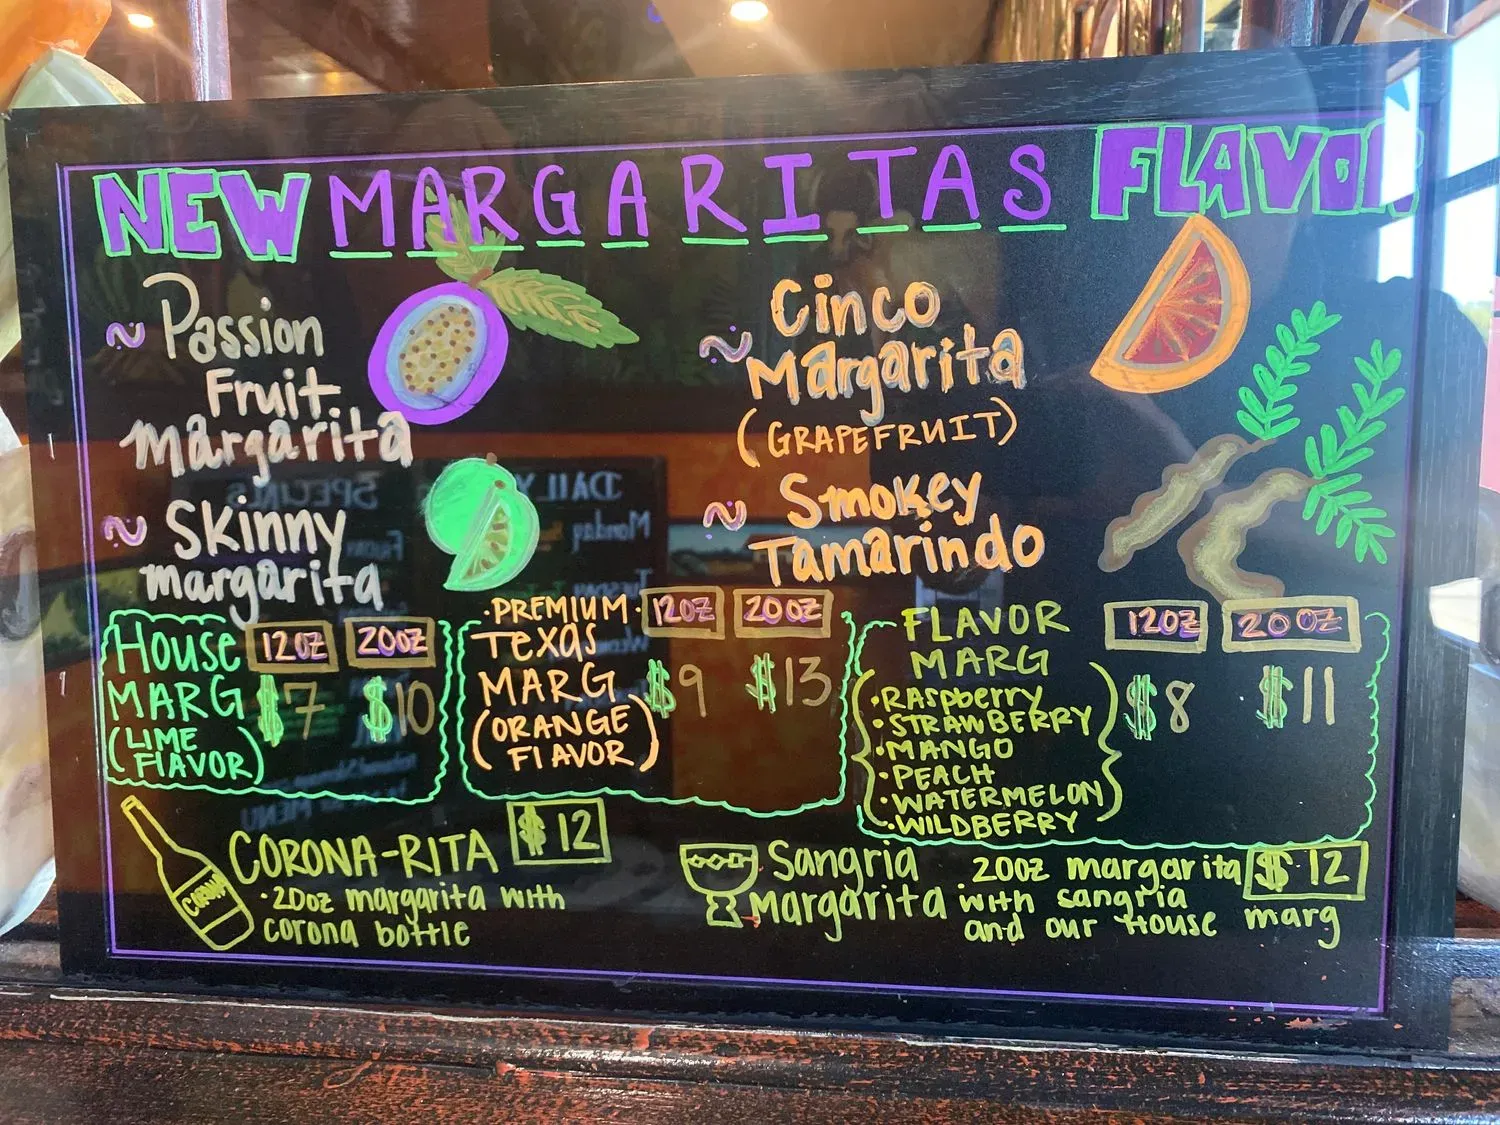 NEW MARGARITAS FLAVOR
~ Passion
Fruit
Margarita
~ Skinny
margarita
~ Cinco
Margarita
(GRAPEFRUIT)
~ Smokey
Tamarindo
House 12oz 20oz
MARG $7 $10
(LIME
FLAVOR)
·PREMIUM· 12oz 20oz
Texas
MARG $9 $13
(ORANGE
FLAVOR)
FLAVOR 12oz 20oz
MARG $8 $11
·RASpberry
·STRAWBERRY
·MANGO
·PEACH
·WATERMELON
·WILDBERRY
CORONA-RITA $12
·20oz margarita with
corona bottle
CORONA
Sangria
Margarita
20oz margarita $12
with sangria
and our House marg
DAILY SPECIALS
Monday